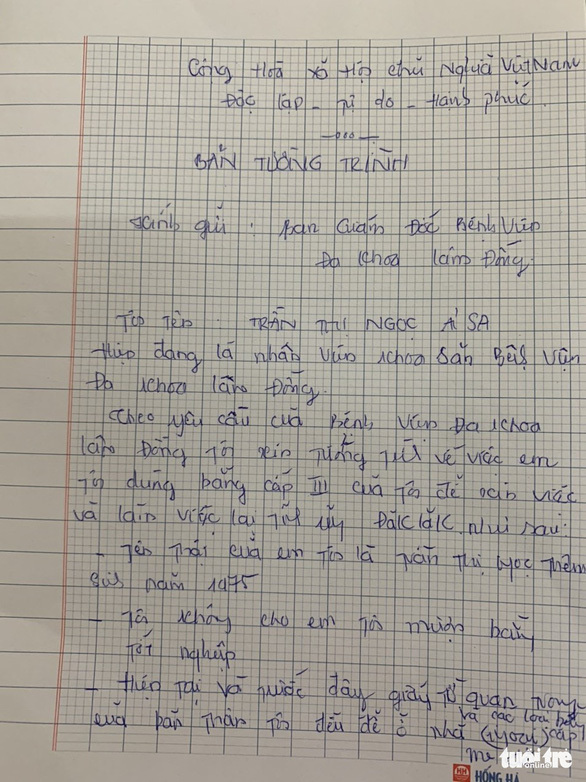 Cộng Hoà xã Hội chủ Nghĩa Việt Nam
Độc lập - Tự do - Hạnh phúc
BẢN TƯỜNG TRÌNH
Kính gửi: Ban Giám Đốc Bệnh Viện
Đa Khoa Lâm Đồng.
Tôi tên: TRẦN THỊ NGỌC ÁI SA
Hiện đang là nhân viên khoa Sản Bệnh Viện
Đa khoa Lâm Đồng.
Theo yêu cầu của Bệnh Viện Đa khoa
Lâm Đồng Tôi xin tường trình về việc em
Tôi dùng bằng cấp III của Tôi để xin việc
và làm việc tại Tỉnh ủy ĐăkLăk như sau:
- Tên Thật của em Tôi là Trần Thị Ngọc Thêm
Sinh năm 1975
- Tôi không cho em Tôi mượn bằng
Tốt nghiệp
- Hiện Tại và trước đây giấy Tờ quan Trọng
và các loại bằng cấp
của bản Thân Tôi đều để ở nhà
mẹ
tuổi trẻ
online
HH
HỒNG HÀ